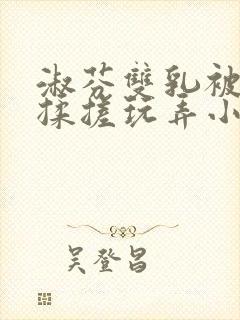 淑芬雙乳被
揉搓玩弄小
吳登昌